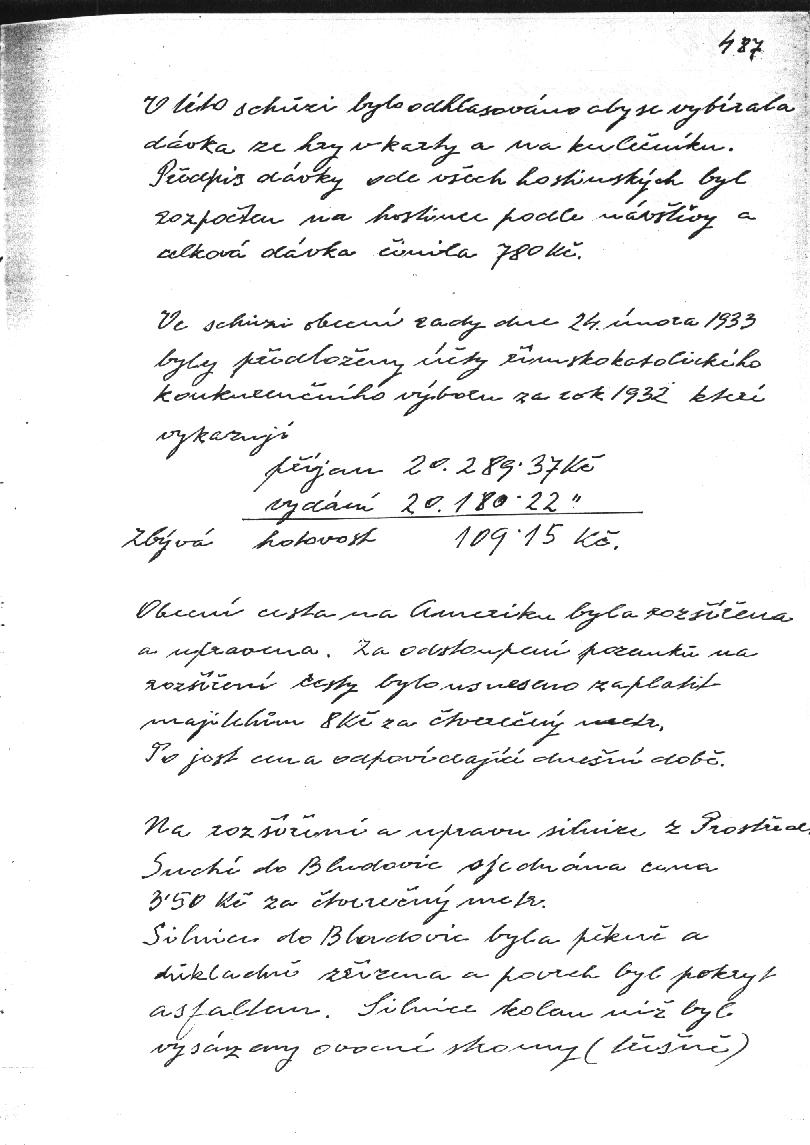 487
V této schůzi bylo odhlasováno aby se vybírala
dávka ze hry v karty a na kulečníku.
Předpis dávky ode všech hostinských byl
rozpočten na hostince podle návštivy a
celková dávka činila 780 Kč.
Ve schůzi obecní rady dne 24. února 1933
byly předloženy účty římskokatolického
konkurenčního výboru za rok 1932 které
vykazují
příjem 20.289·37 Kč
vydání 20.180·22 "
Zbývá hotovost 109·15 Kč.
Obecní cesta na Ameriku byla rozšířena
a upravena. Za odstoupení pozemků na
rozšíření cesty bylo usneseno zaplatit
majitelům 8 Kč za čtverečný metr.
To jest cena odpovídající dnešní době.
Na rozšíření a upravu silnice z Prostřed.
Suché do Bludovic sjednána cena
3'50 Kč za čtverečný metr.
Silnice do Bludovic byla pěkně a
důkladně zřízena a povrch byl pokryt
asfaltem. Silnice kolem níž byl
vysázeny ovocné stromy (třešně)